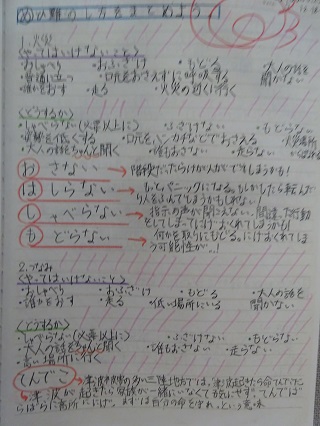 めひ難のし方をまとめよう!
1.火災
(やってはいけないこと)
・おしゃべり ・おふざけ ・もどる ・大人の話を聞かない
・普通に立つ ・口元をおさえずに呼吸する
・誰かをおす ・走る ・火災の近くに行く
(どうするか)
・しゃべらない(必要以上に) ・ふざけない ・もどらない
・姿勢を低くする ・口元をハンカチなどでおさえる
・大人の話をちゃんと聞く ・誰もおさない ・走らない
おさない→
はしらない→もっとパニックになる。もしかしたら転んだり人をふんでしまうかもしれない
しゃべらない→指示の声が聞こえない。間違った行動をしてしまって
もどらない→何かを取りにもどる。にげおくれてしまう可能性が…!
2.つなみ
(やってはいけないこと)
・おしゃべり ・おふざけ ・もどる ・大人の話を聞かない
・誰かをおす ・走る ・低い場所にいる
(どうするか)
・しゃべらない(必要以上に) ・ふざけない ・もどらない
・大人の話をちゃんと聞く ・誰もおさない ・走らない
・高い場所に行く
てんでこ→津波被害の多い三陸地方では、
津波が起きたら家族が一緒にいなくても気にせず、てんでばらばらに高所ににげ、まずは自分の命を守れ、という意味